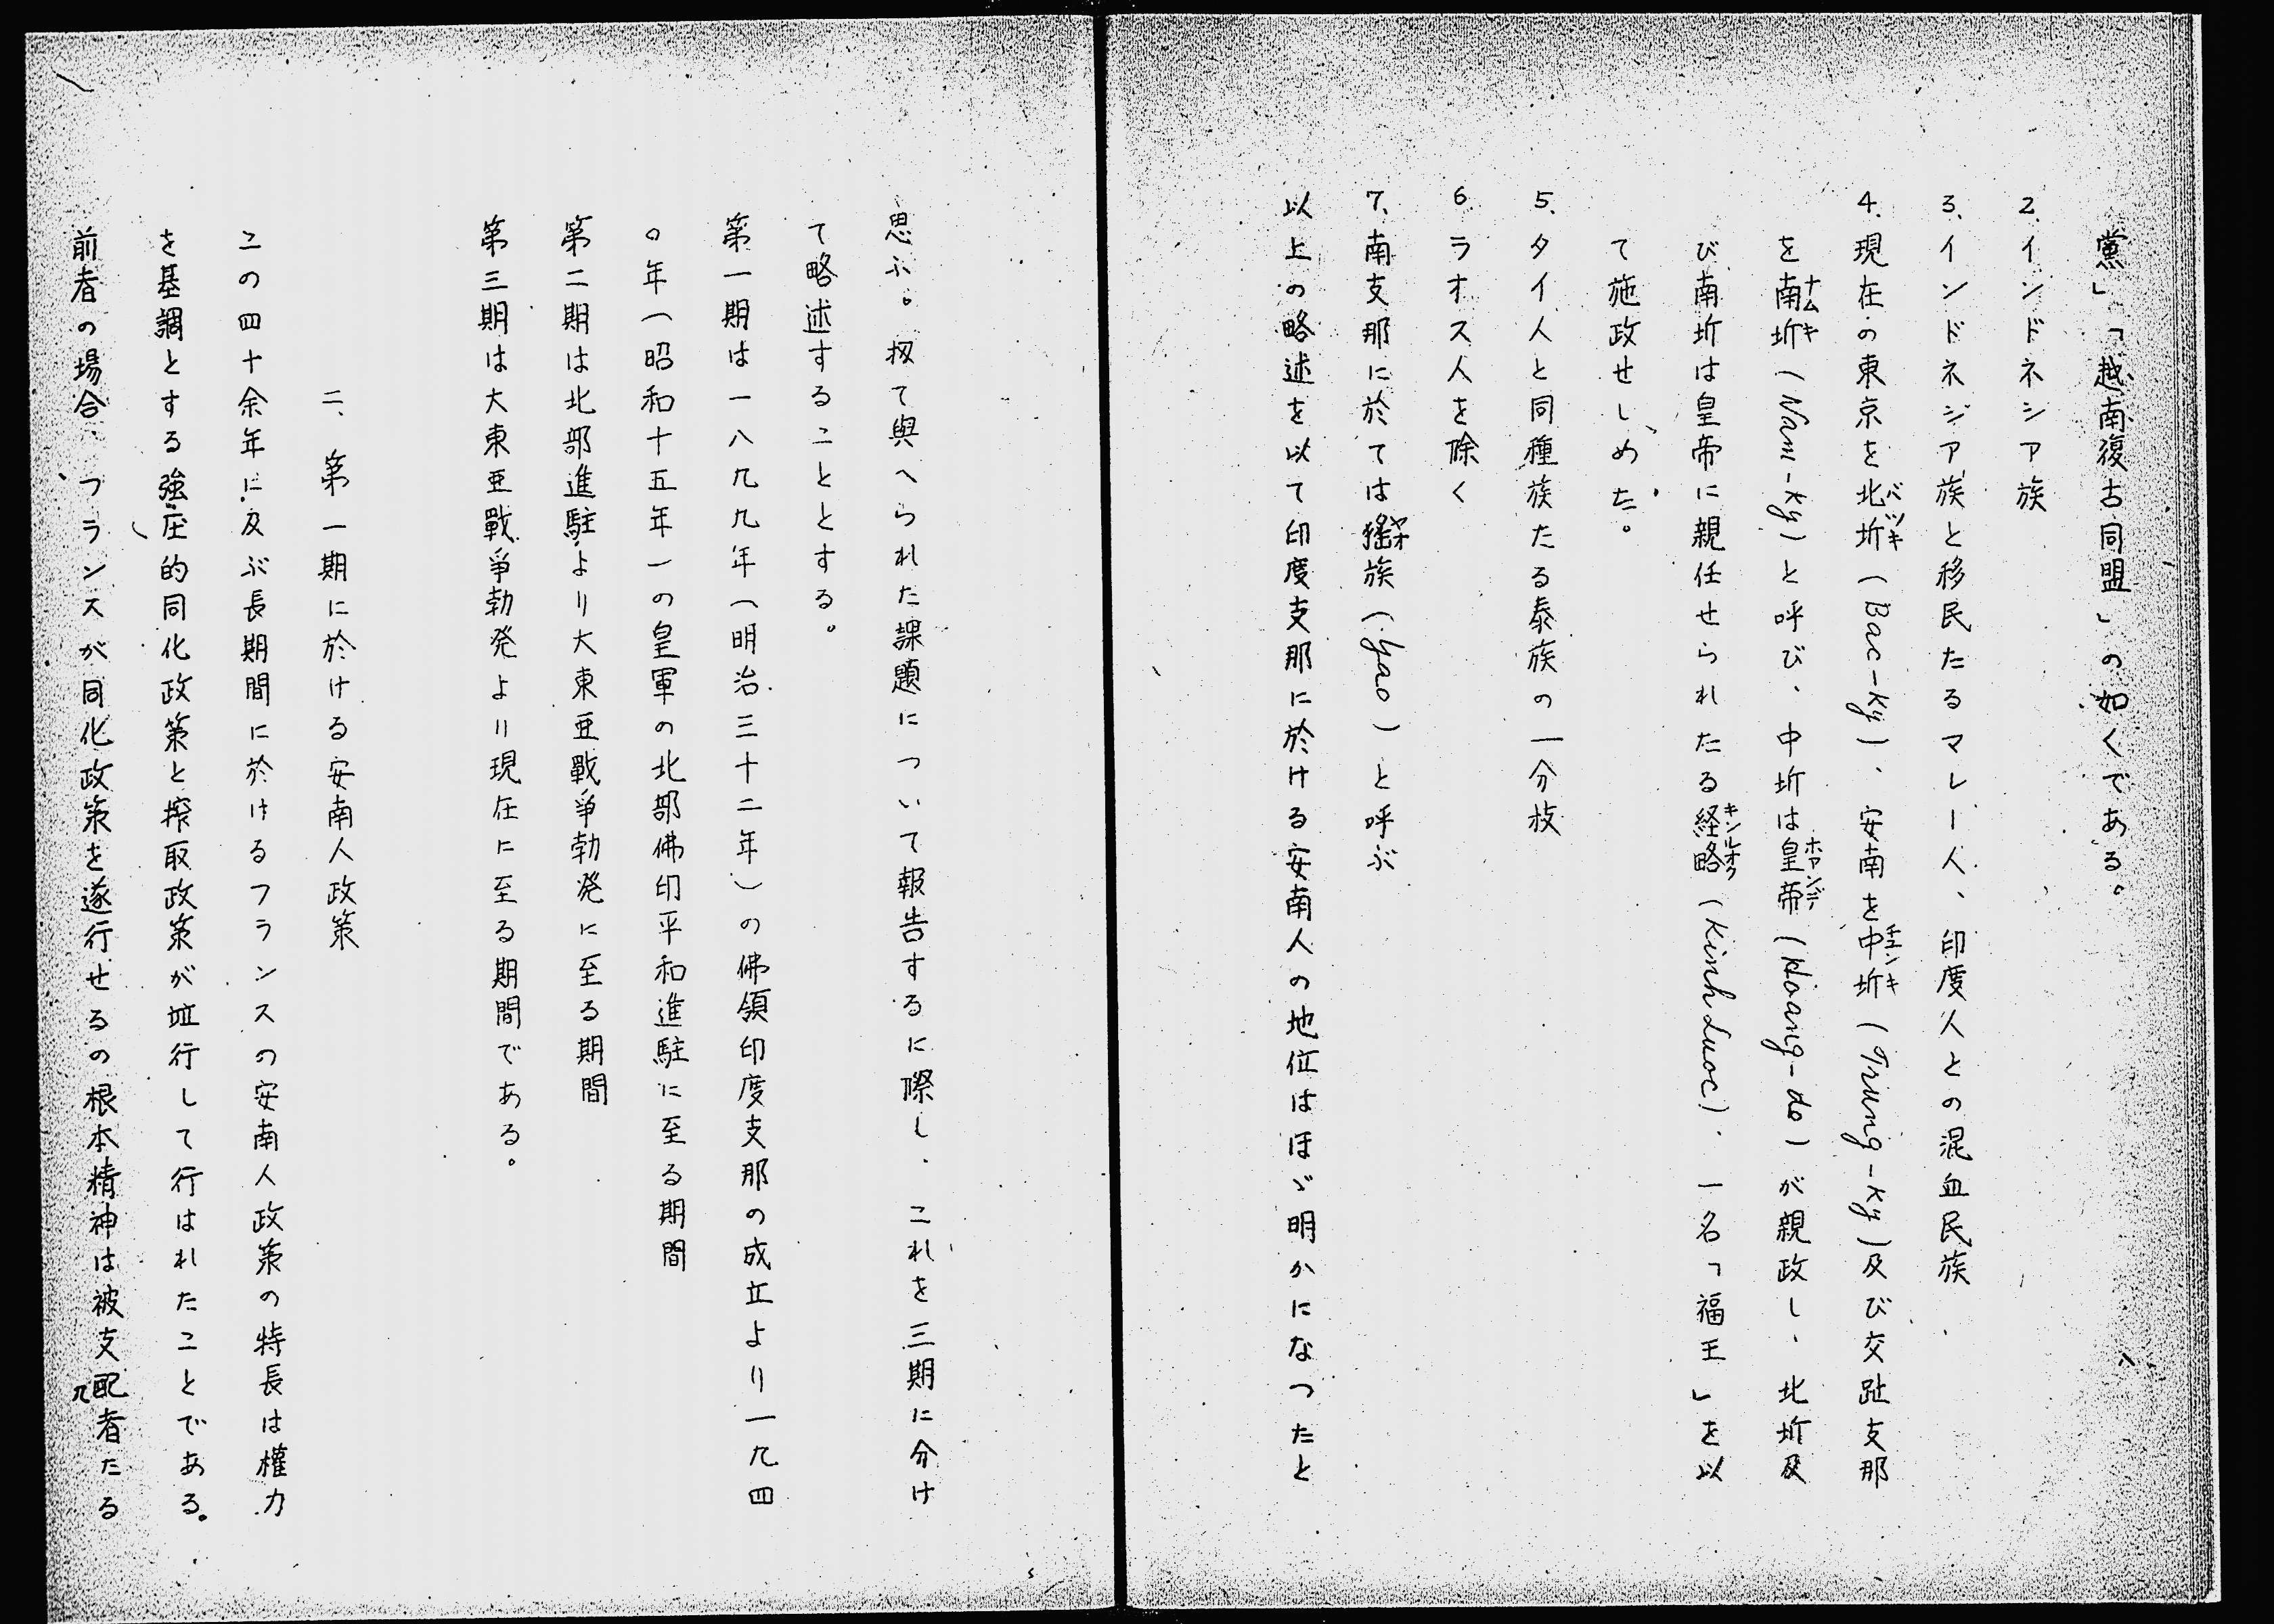 黨」「越南復古同盟」の如くである。
2.インドネシア族
3.インドネジア族と移民たるマレー人、印度人との混血民族
4.現在の東京を北圻（Bac-Ky）、安南を中圻（Trung-Ky）及び交趾支那
バツキ
チユンキ
を南圻（Nam-Ky）と呼び、中圻は皇帝（Hoang-de）が親政し、北圻及
ナムキ
ホアンデ
び南圻は皇帝に親任せられたる経略（Kinh Luoc）、一名「福王」を以
キンルオク
て施政せしめた。
5.タイ人と同種族たる泰族の一分枝
6.ラオス人を除く
7.南支那に於ては猺族（Yao）と呼ぶ
ヤオ
以上の略述を以て印度支那に於ける安南人の地位はほゞ明かになつたと
八
思ふ。扨て與へられた課題について報告するに際し、これを三期に分け
て略述することとする。
第一期は一八九九年（明治三十二年）の佛領印度支那の成立より一九四
〇年（昭和十五年）の皇軍の北部佛印平和進駐に至る期間
第二期は北部進駐より大東亜戰爭勃発に至る期間
第三期は大東亜戰爭勃発より現在に至る期間である。
二、第一期に於ける安南人政策
この四十余年に及ぶ長期間に於けるフランスの安南人政策の特長は權力
を基調とする強圧的同化政策と搾取政策が並行して行はれたことである。
前者の場合、フランスが同化政策を遂行せるの根本精神は被支配者たる
九